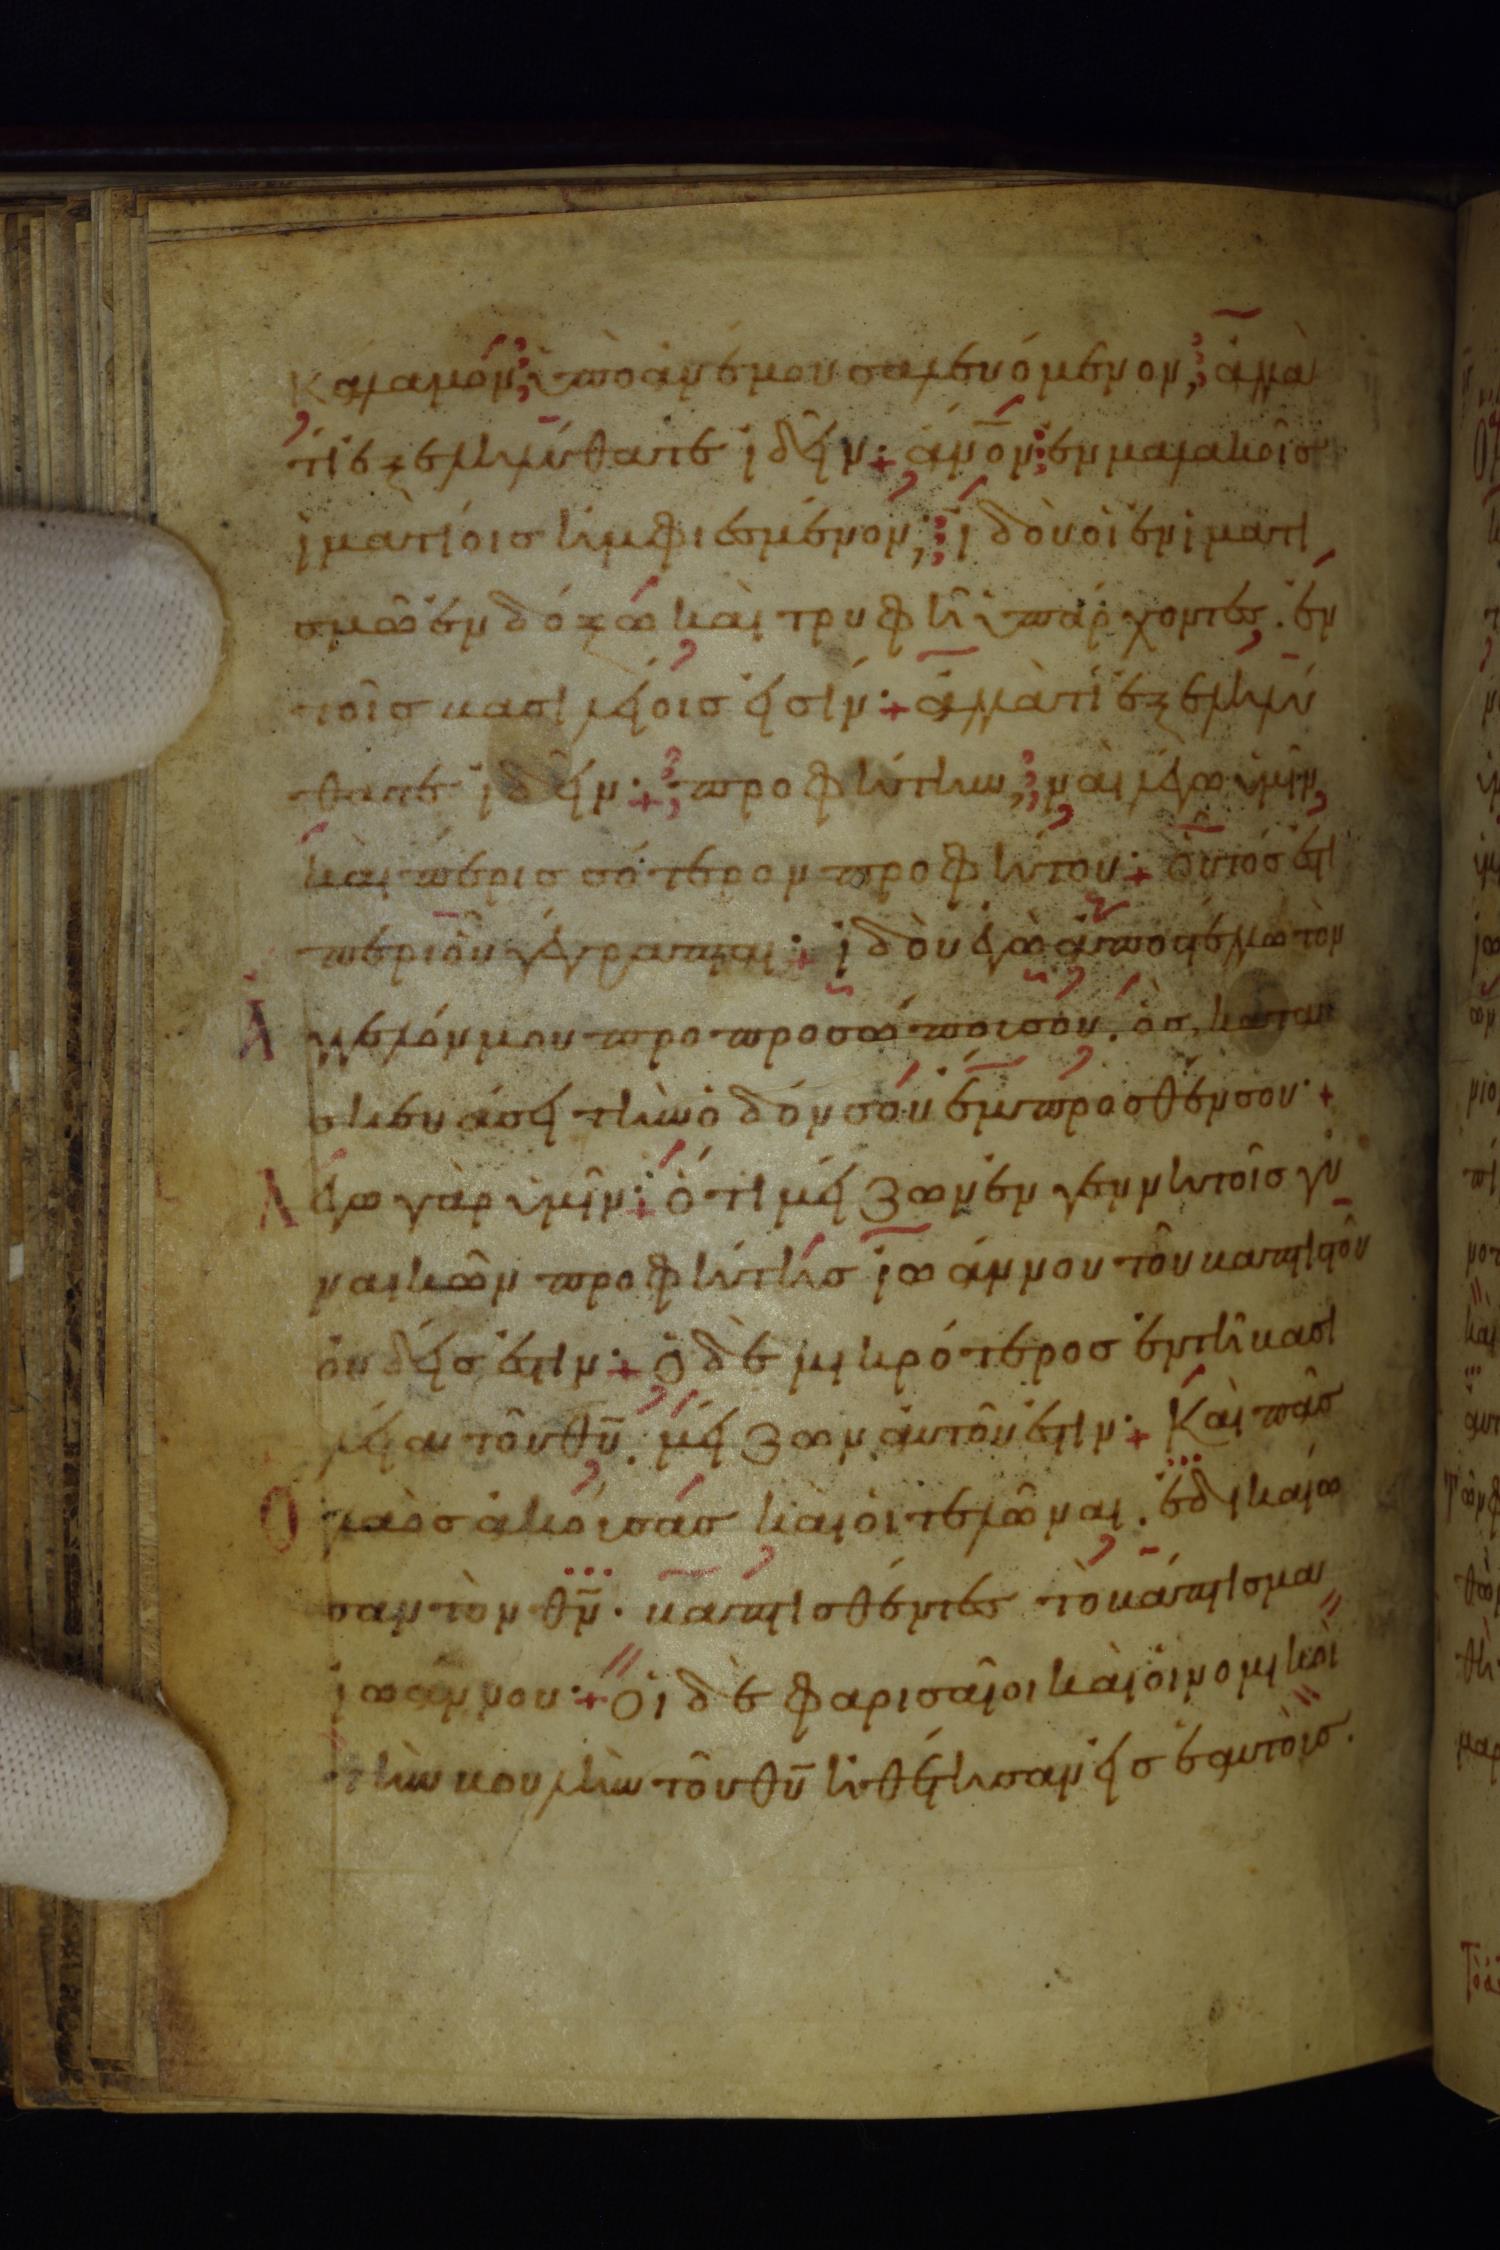 Κάλαμόν ὑπὸ ἀνέμου σαλευόμενον, ἀλλὰ
τί ἐξεληλύθατε ἰδεῖν· ἄνον ἐν μαλακοῖσ
ἱματίοισ ἠμφιεσμένον, ἰδοὺ οἱ ἐν ἱματι
σμῶ ἐνδόξω καὶ τρυφῆ ὑπάρχοντεσ. ἐν
τοῖσ βασιλείοισ εἰσίν· ἀλλὰ τί ἐξεληλύ
θατε ἰδεῖν· προφήτην, ναὶ λέγω ὑμῖν,
καὶ περισσότερον προφήτου· οὗτόσ ἐστι
περὶ οὗ γέγραπται· ἰδοὺ ἐγὼ ἀποστέλλω τὸν
Ἄ γγελόν μου πρὸ προσώπου σου. ὃσ κατα
σκευάσει τὴν ὁδόν σου ἔμπροσθέν σου·
Λ έγω γὰρ ὑμῖν· ὅτι μείζων ἐν γεννητοῖσ γυ
ναικῶν προφήτησ ἰωάννου τοῦ βαπτιστοῦ
οὐδείσ ἐστιν· ὁ δὲ μικρότεροσ ἐν τῆ βασι
λεία τοῦ θυ. μείζων αὐτοῦ ἐστιν· Καὶ πᾶσ
Ὁ λαὸσ ἀκούσασ καὶ οἱ τελῶναι. ἐδικαίω
σαν τὸν θν. βαπτισθέντεσ τὸ βάπτισμα
ἰωάννου· Οἱ δὲ φαρισαῖοι καὶ οἱ νομικοὶ
τὴν βουλὴν τοῦ θυ ἠθέτησαν εἰσ ἑαυτοὺσ.